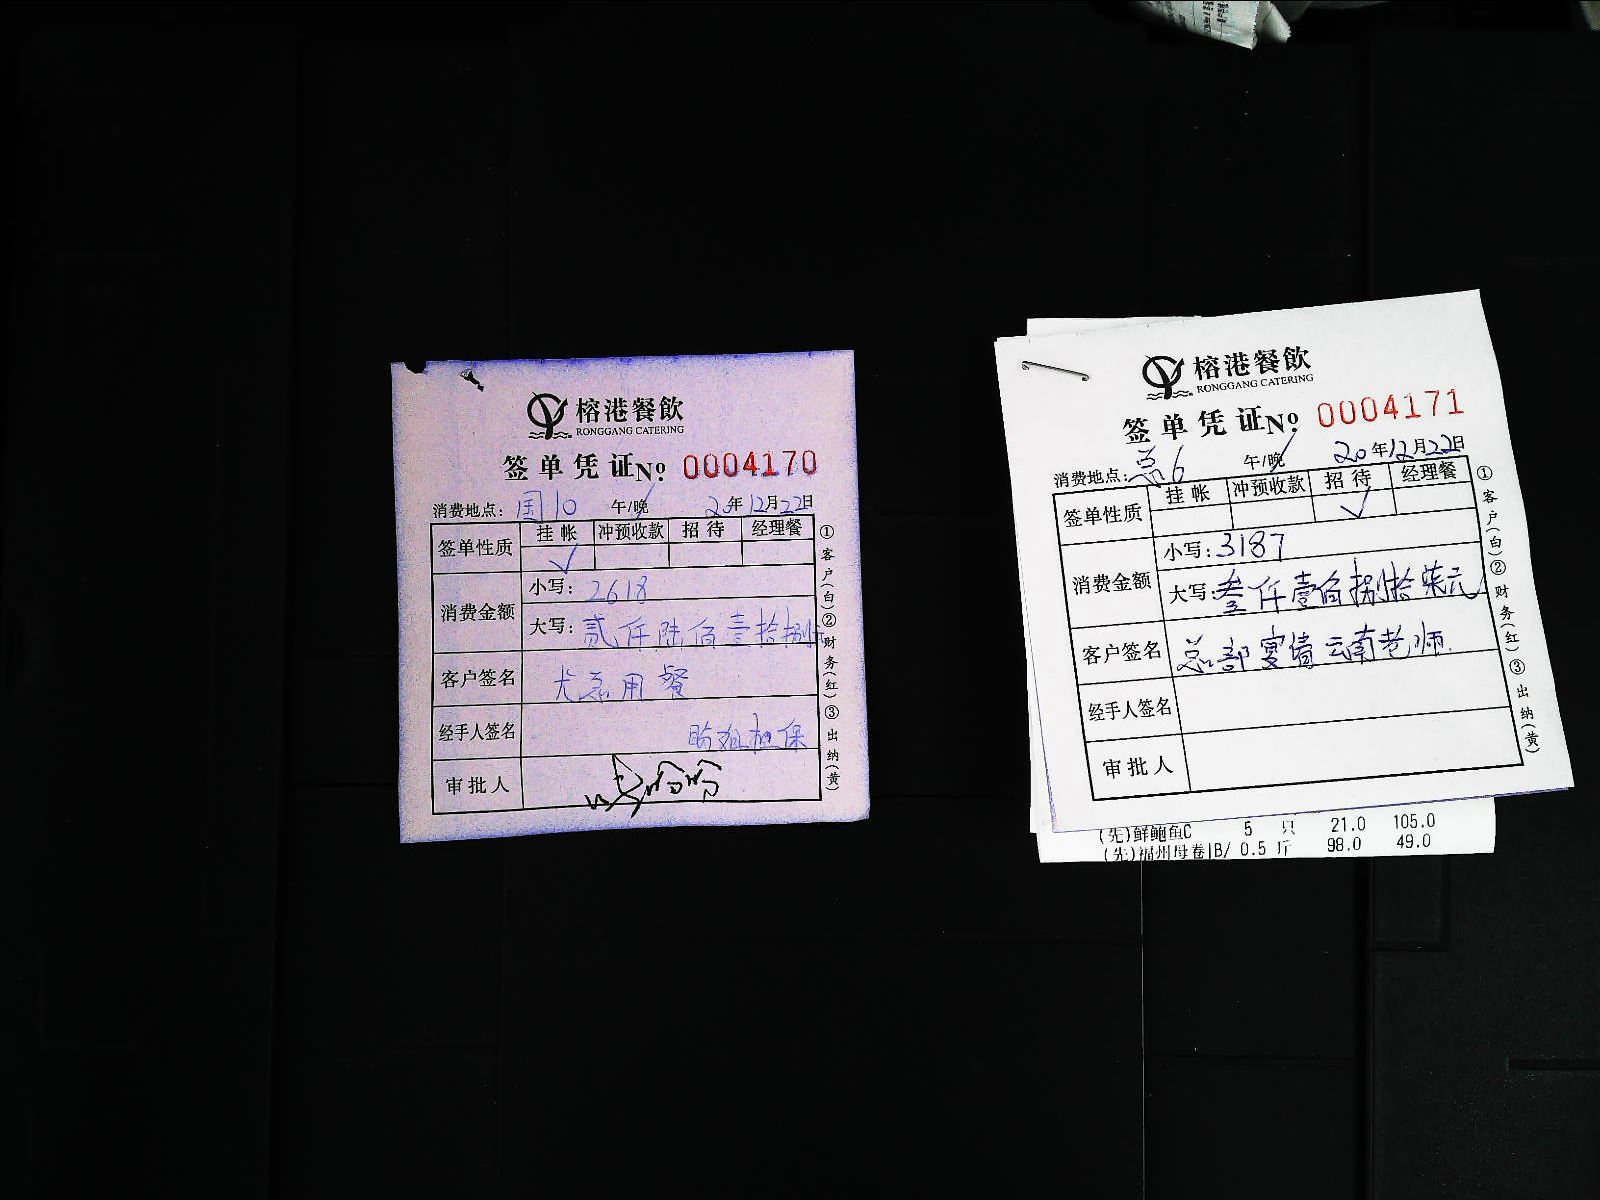 榕港餐飲
RONGGANG CATERING
签单凭证No 0004170
消费地点：国10 午/晚 20年12月22日
签单性质 挂帐 冲预收款 招待 经理餐
消费金额 小写：2618
大写：贰仟陆佰壹拾捌元
客户签名 尤总用餐
经手人签名 担保
审批人
①客户(白)②财务(红)③出纳(黄)
榕港餐飲
RONGGANG CATERING
签单凭证No 0004171
消费地点：总6 午/晚 20年12月22日
签单性质 挂帐 冲预收款 招待 经理餐
消费金额 小写：3187
大写：叁仟壹佰捌拾柒元
客户签名 总部宴请云南老师
经手人签名
审批人
①客户(白)②财务(红)③出纳(黄)
(先)鲜鲍鱼C 5 只 21.0 105.0
(先)福州母卷|B/ 0.5 斤 98.0 49.0